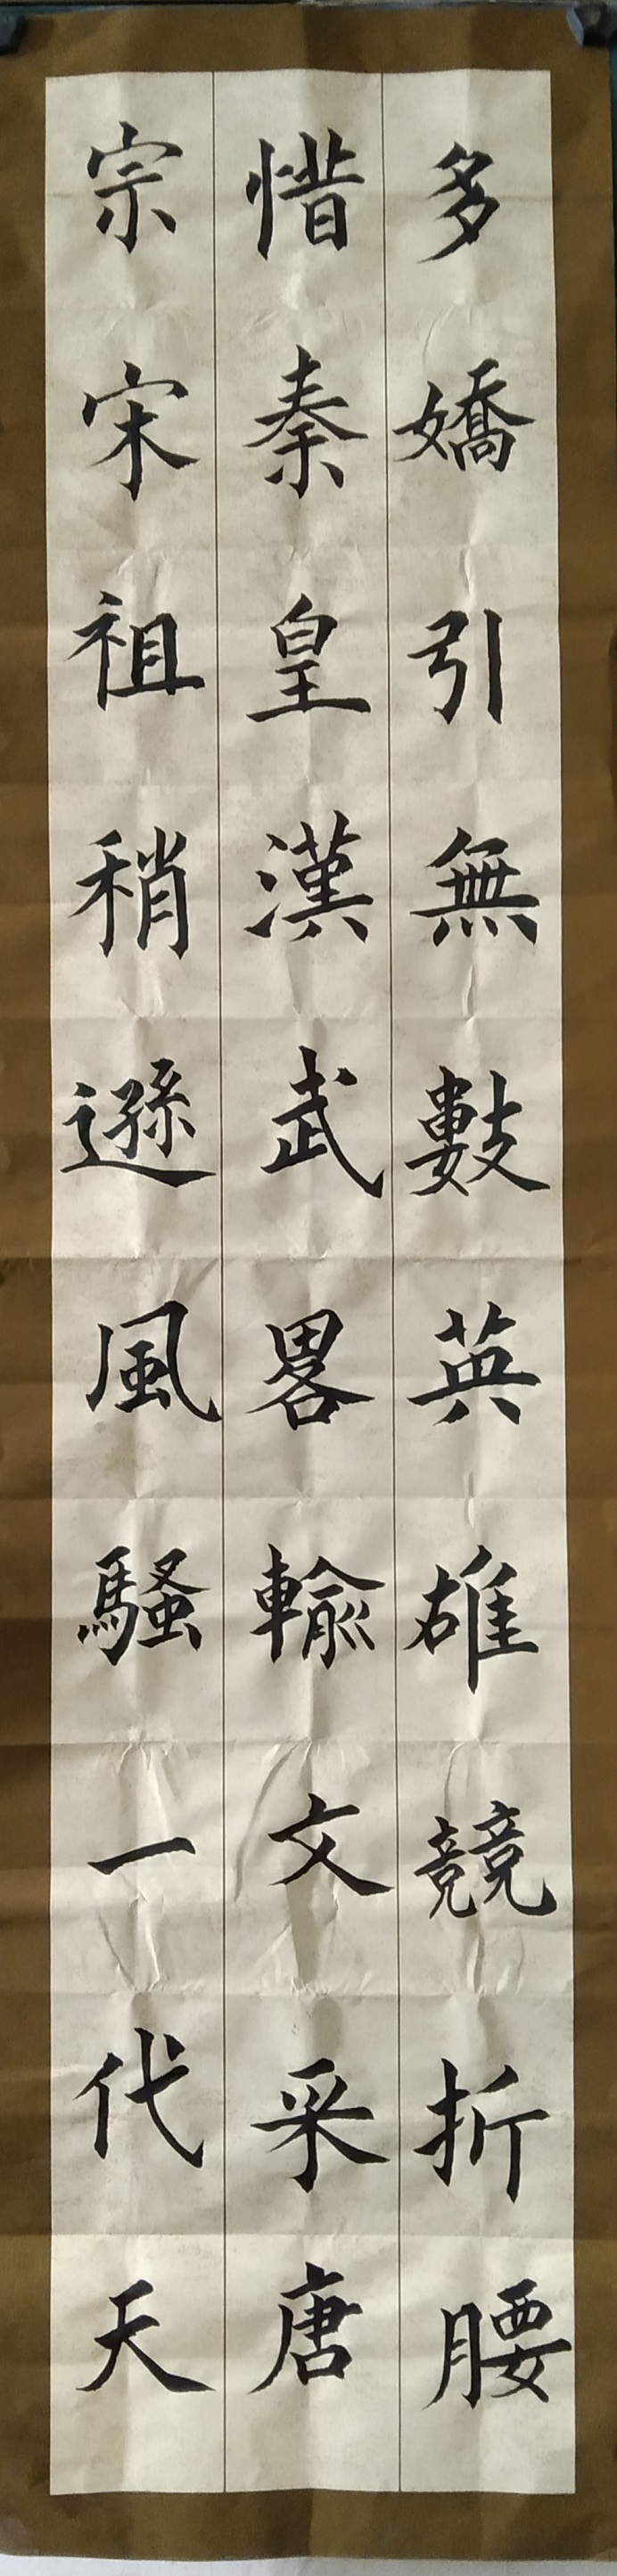 多嬌引無數英雄競折腰
惜秦皇漢武畧輸文采唐
宗宋祖稍遜風騷一代天